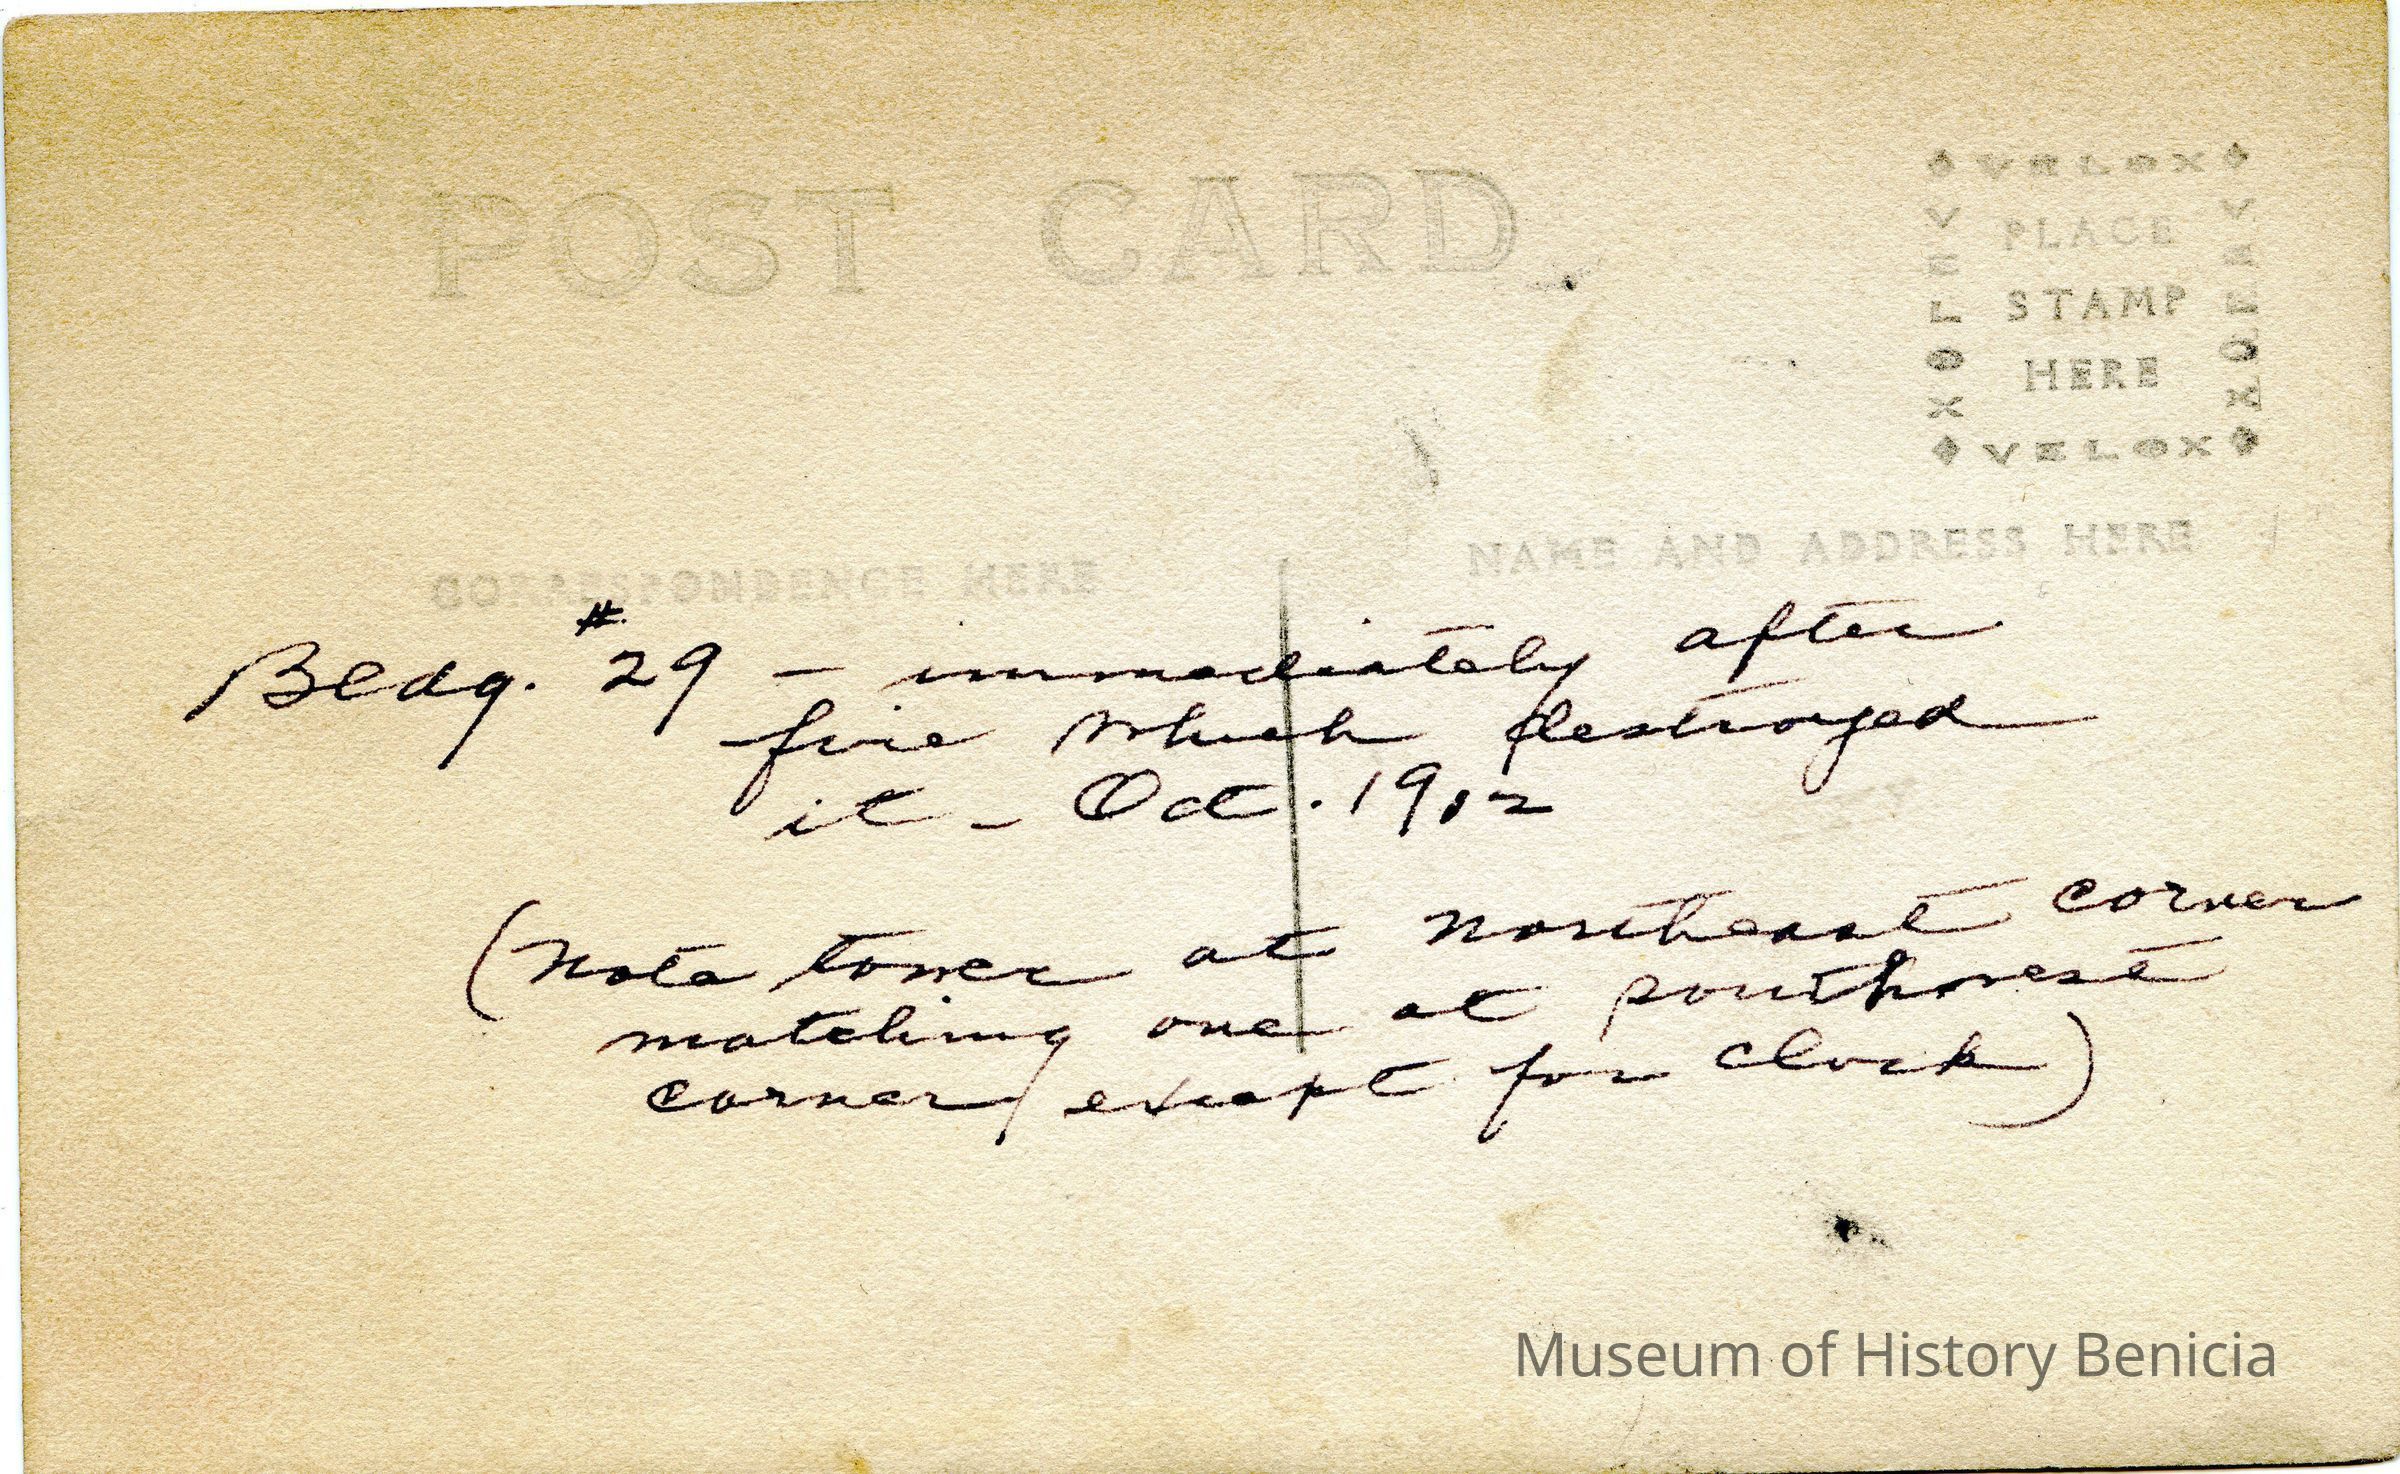 POST CARD
◆VELOX◆
VELOX
PLACE
STAMP
HERE
VELOX
◆VELOX◆
CORRESPONDENCE HERE
NAME AND ADDRESS HERE
Bldg. #29 – immediately after
fire which destroyed
it – Oct. 1912
(Note tower at northeast corner
matching one at southwest
corner, except for clock)
Museum of History Benicia